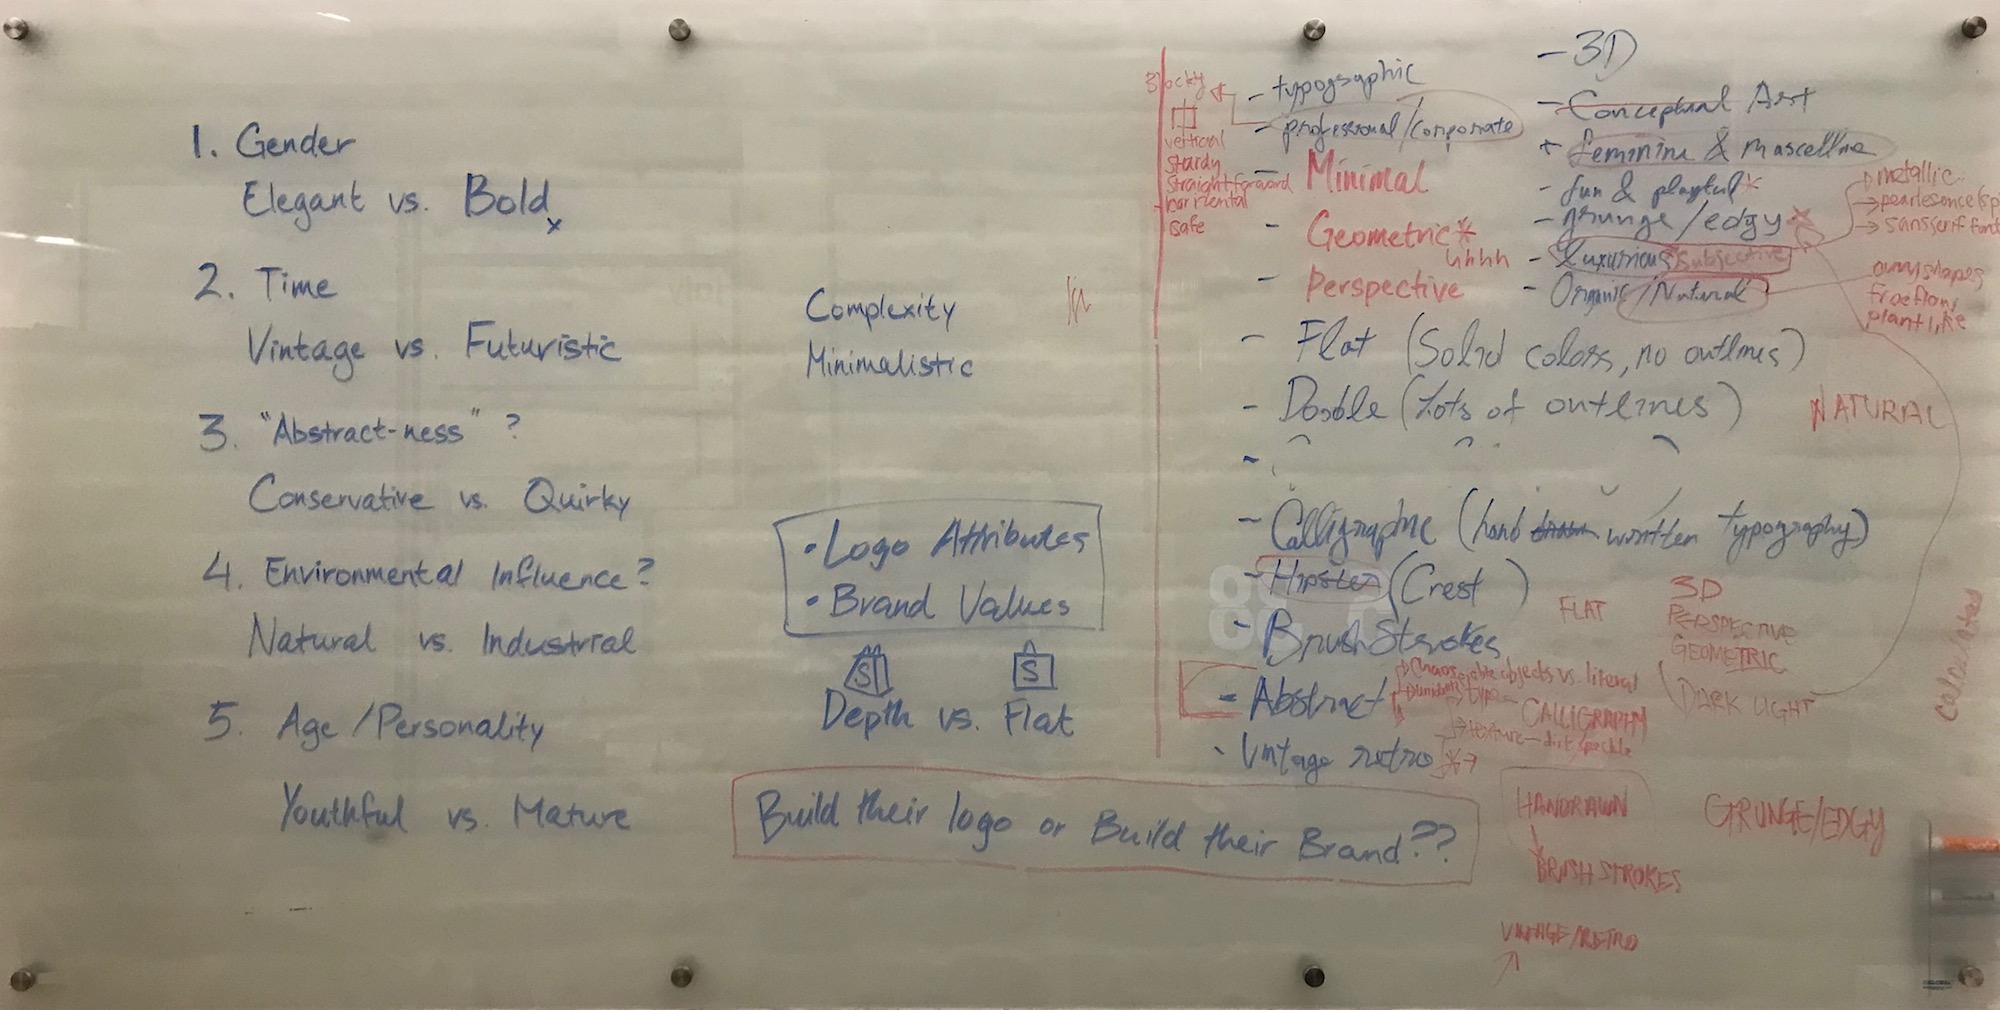 1. Gender
Elegant vs. Bold
2. Time
Vintage vs. Futuristic
3. "Abstract-ness" ?
Conservative vs. Quirky
4. Environmental Influence?
Natural vs. Industrial
5. Age/Personality
Youthful vs. Mature
Complexity
Minimalistic
• Logo Attributes
• Brand Values
S S
Depth vs. Flat
Build their logo or Build their Brand??
Blocky
vertical
sturdy
straightforward
horriental
safe
- typographic
- professional/corporate
- Minimal
- Geometric*
uhhh
- Perspective
- 3D
- Conceptual Art
+ feminine & mascelline
- fun & playful*
- grunge/edgy
- Luxurious subjective
- Organic/Natural
metallic
sansserif font
plantlike
- Flat (Solid colors, no outlines)
- Doodle (Lots of outlines)
NATURAL
- Calligraphic (hand drawn written typography)
- Hipster (Crest )
- BrushStrokes
- Abstract
objects vs. literal
type - CALLIGRAPHY
texture - dirt, speckle
- Vintage retro
FLAT
3D
PERSPECTIVE
GEOMETRIC
DARK LIGHT
HANDRAWN
BRUSH STROKES
VINTAGE/RETRO
GRUNGE/EDGY